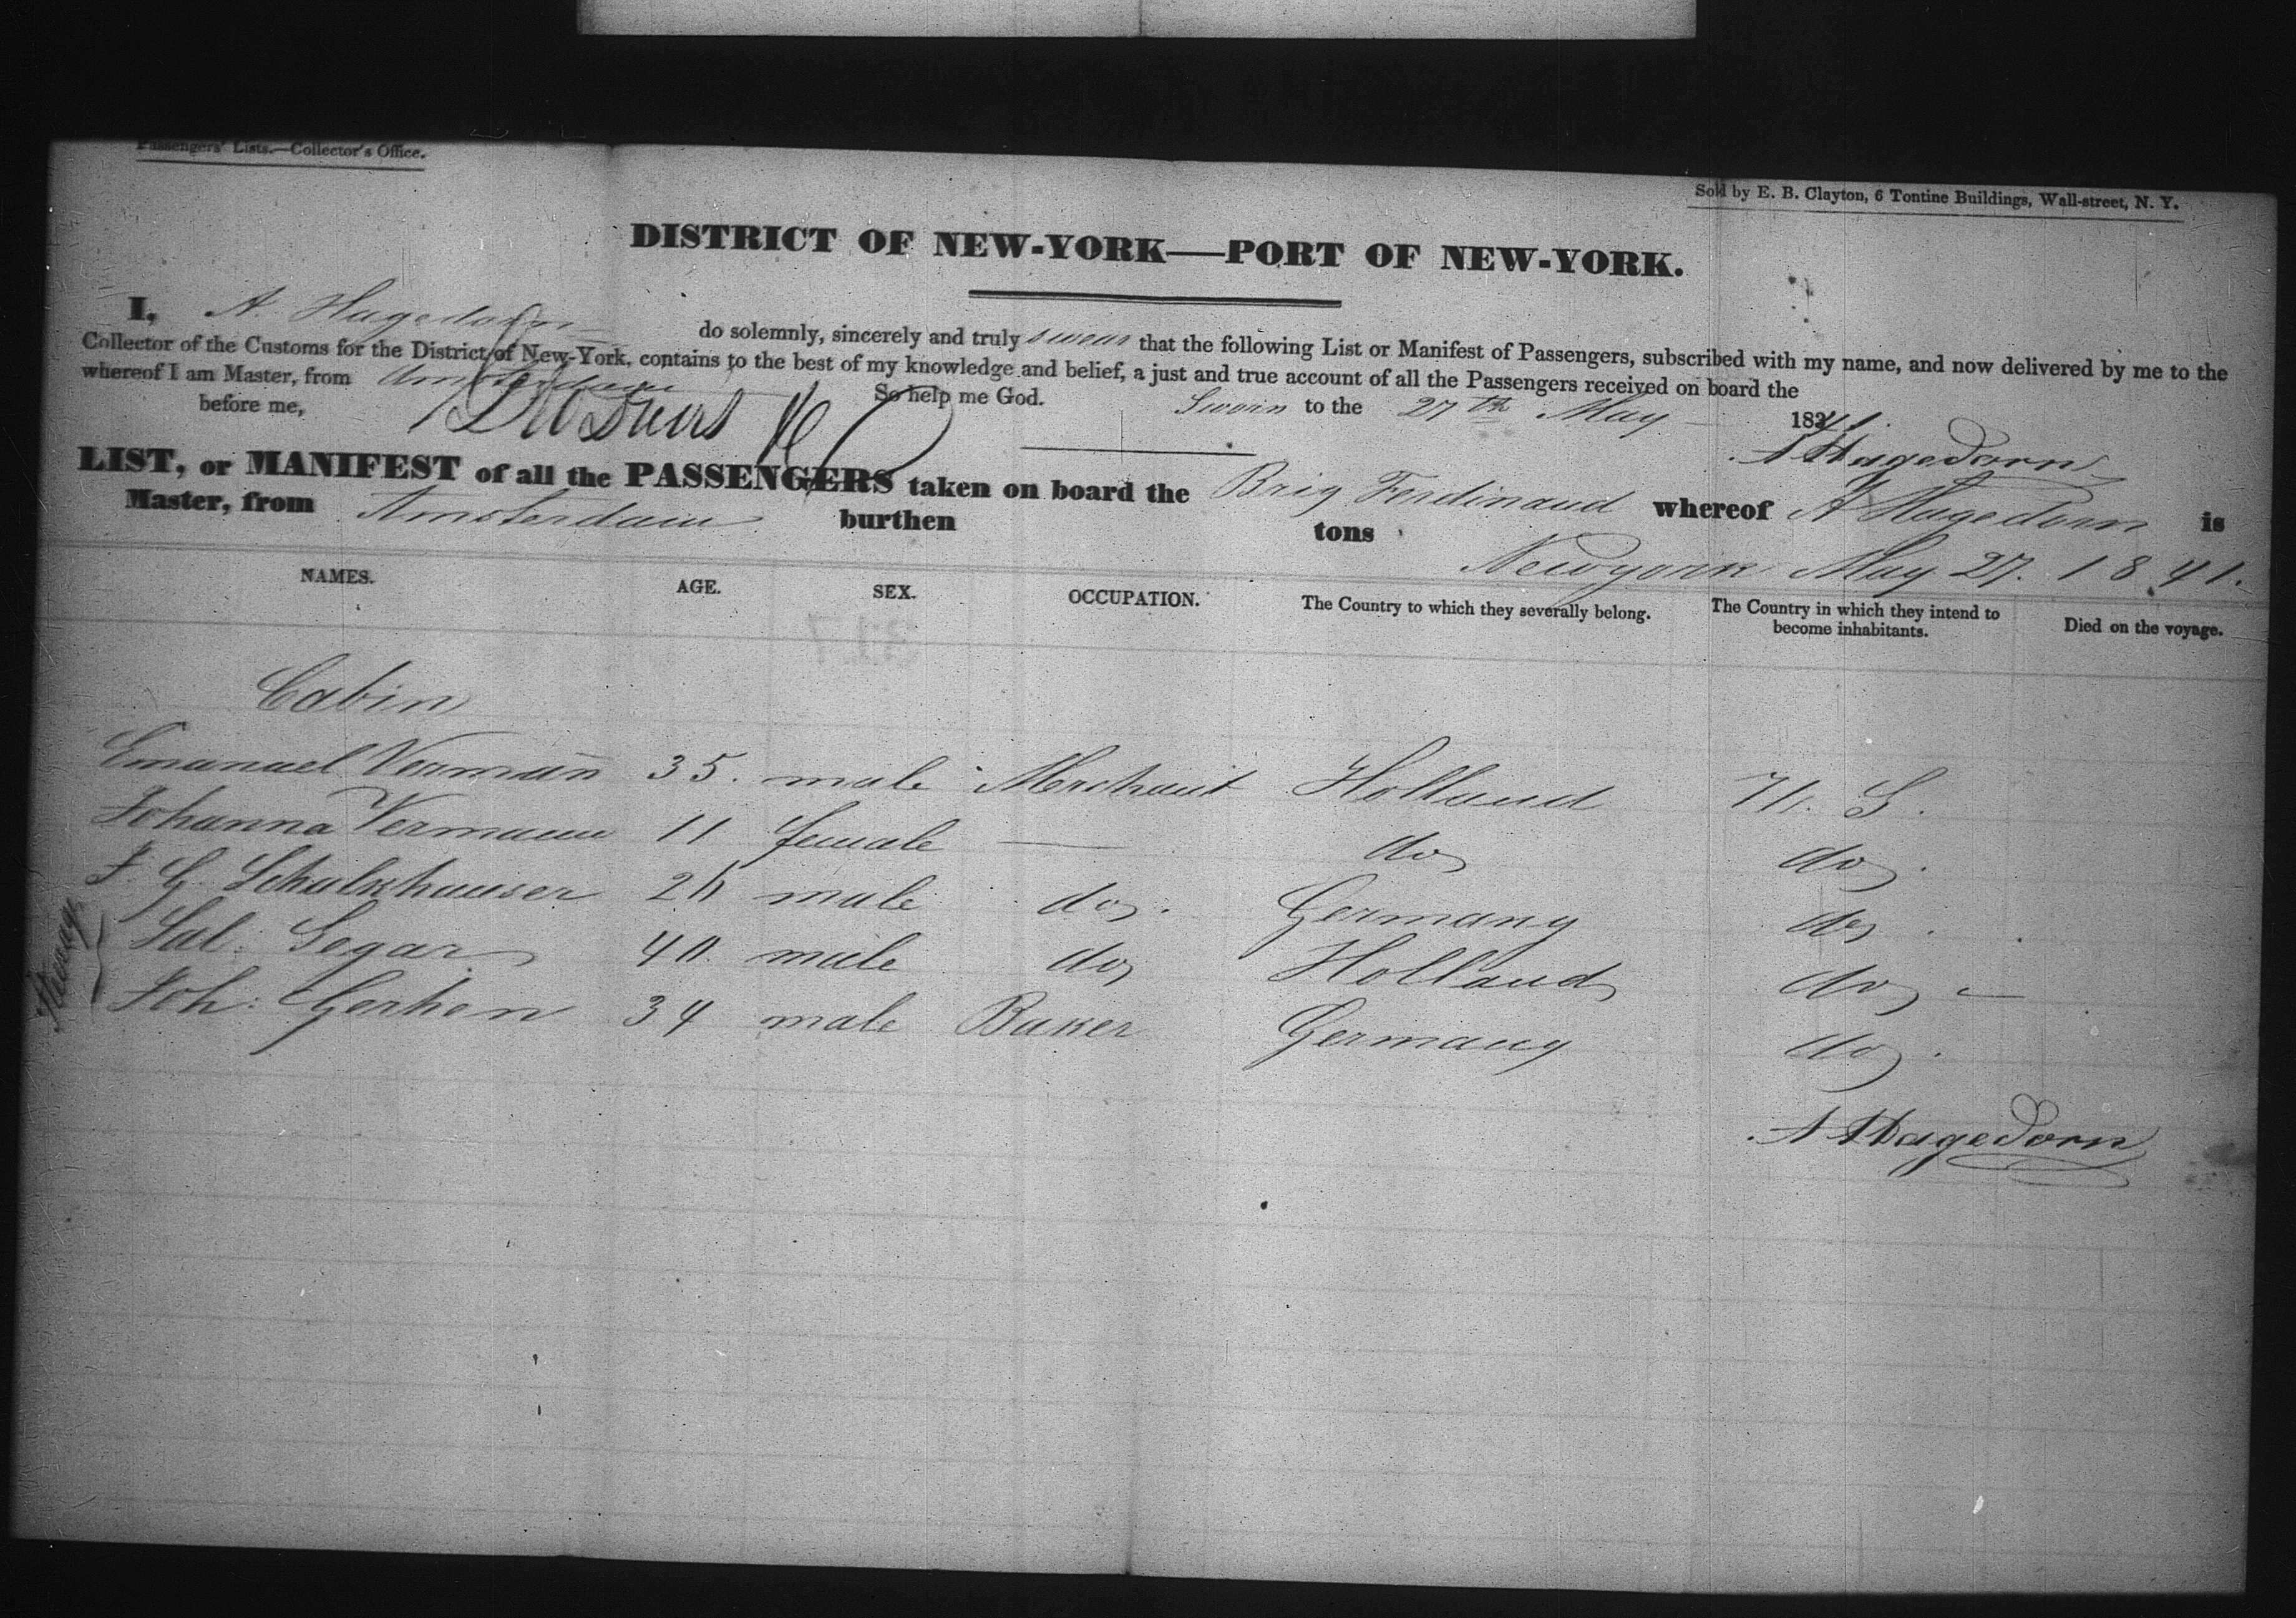 Passengers' Lists.—Collector's Office.
Sold by E. B. Clayton, 6 Tontine Buildings, Wall-street, N. Y.
DISTRICT OF NEW-YORK—PORT OF NEW-YORK.
I, A. Hagedorn do solemnly, sincerely and truly swear that the following List or Manifest of Passengers, subscribed with my name, and now delivered by me to the
Collector of the Customs for the District of New-York, contains to the best of my knowledge and belief, a just and true account of all the Passengers received on board the
whereof I am Master, from Amsterdam So help me God.
Sworn to the 27th May 1841.
before me,
A Hagedorn
LIST, or MANIFEST of all the PASSENGERS taken on board the Brig Ferdinand whereof A Hagedorn is
Master, from Amsterdam burthen tons
Newyork May 27. 1841.
NAMES. AGE. SEX. OCCUPATION. The Country to which they severally belong. The Country in which they intend to become inhabitants. Died on the voyage.
Cabin
Emanuel Vermann 35. male Merchant Holland U. S.
Johanna Vermann 11 female — do do.
J. G. Schulkhauser male do. Germany do.
Steerage
Sal: Segar 40. male do Holland do —
Joh: Gerken 34 male Baker Germany do.
A Hagedorn